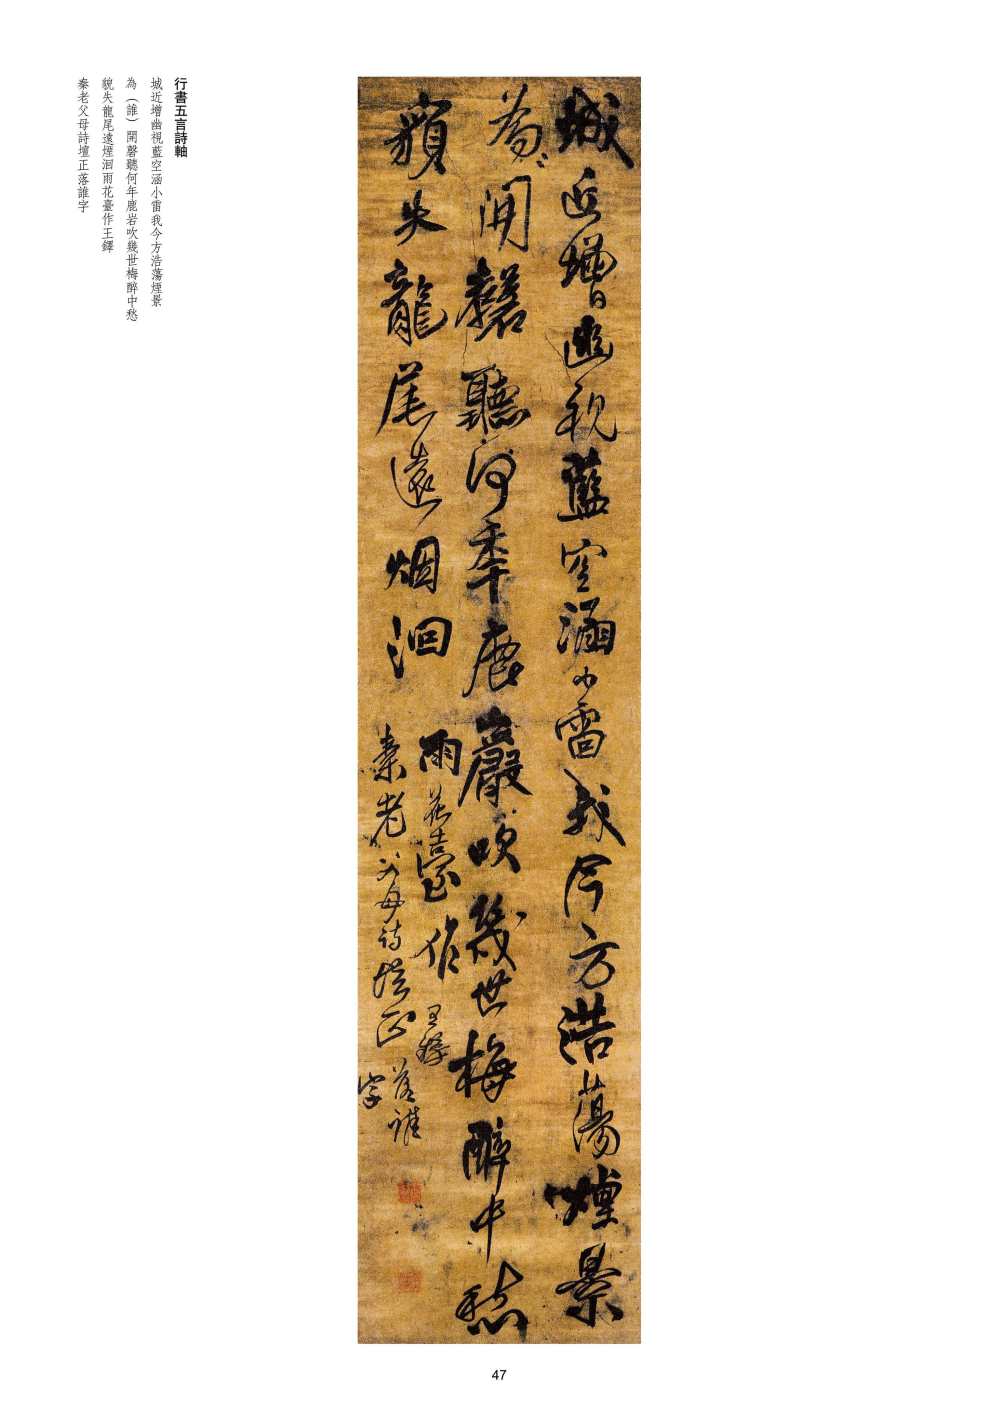 行書五言詩軸
城近增幽視藍空涵小雷我今方浩蕩煙景
為（誰）開磬聽何年鹿岩吹幾世梅醉中愁
貌失龍尾遠煙洄雨花臺作王鐸
秦老父母詩壇正落誰字
城近增幽視藍空涵小雷我今方浩蕩煙景
為開磬聽何年鹿巖吹幾世梅醉中愁
貌失龍尾遠烟洄雨花臺作王鐸
秦老父母詩壇正落誰
字
47